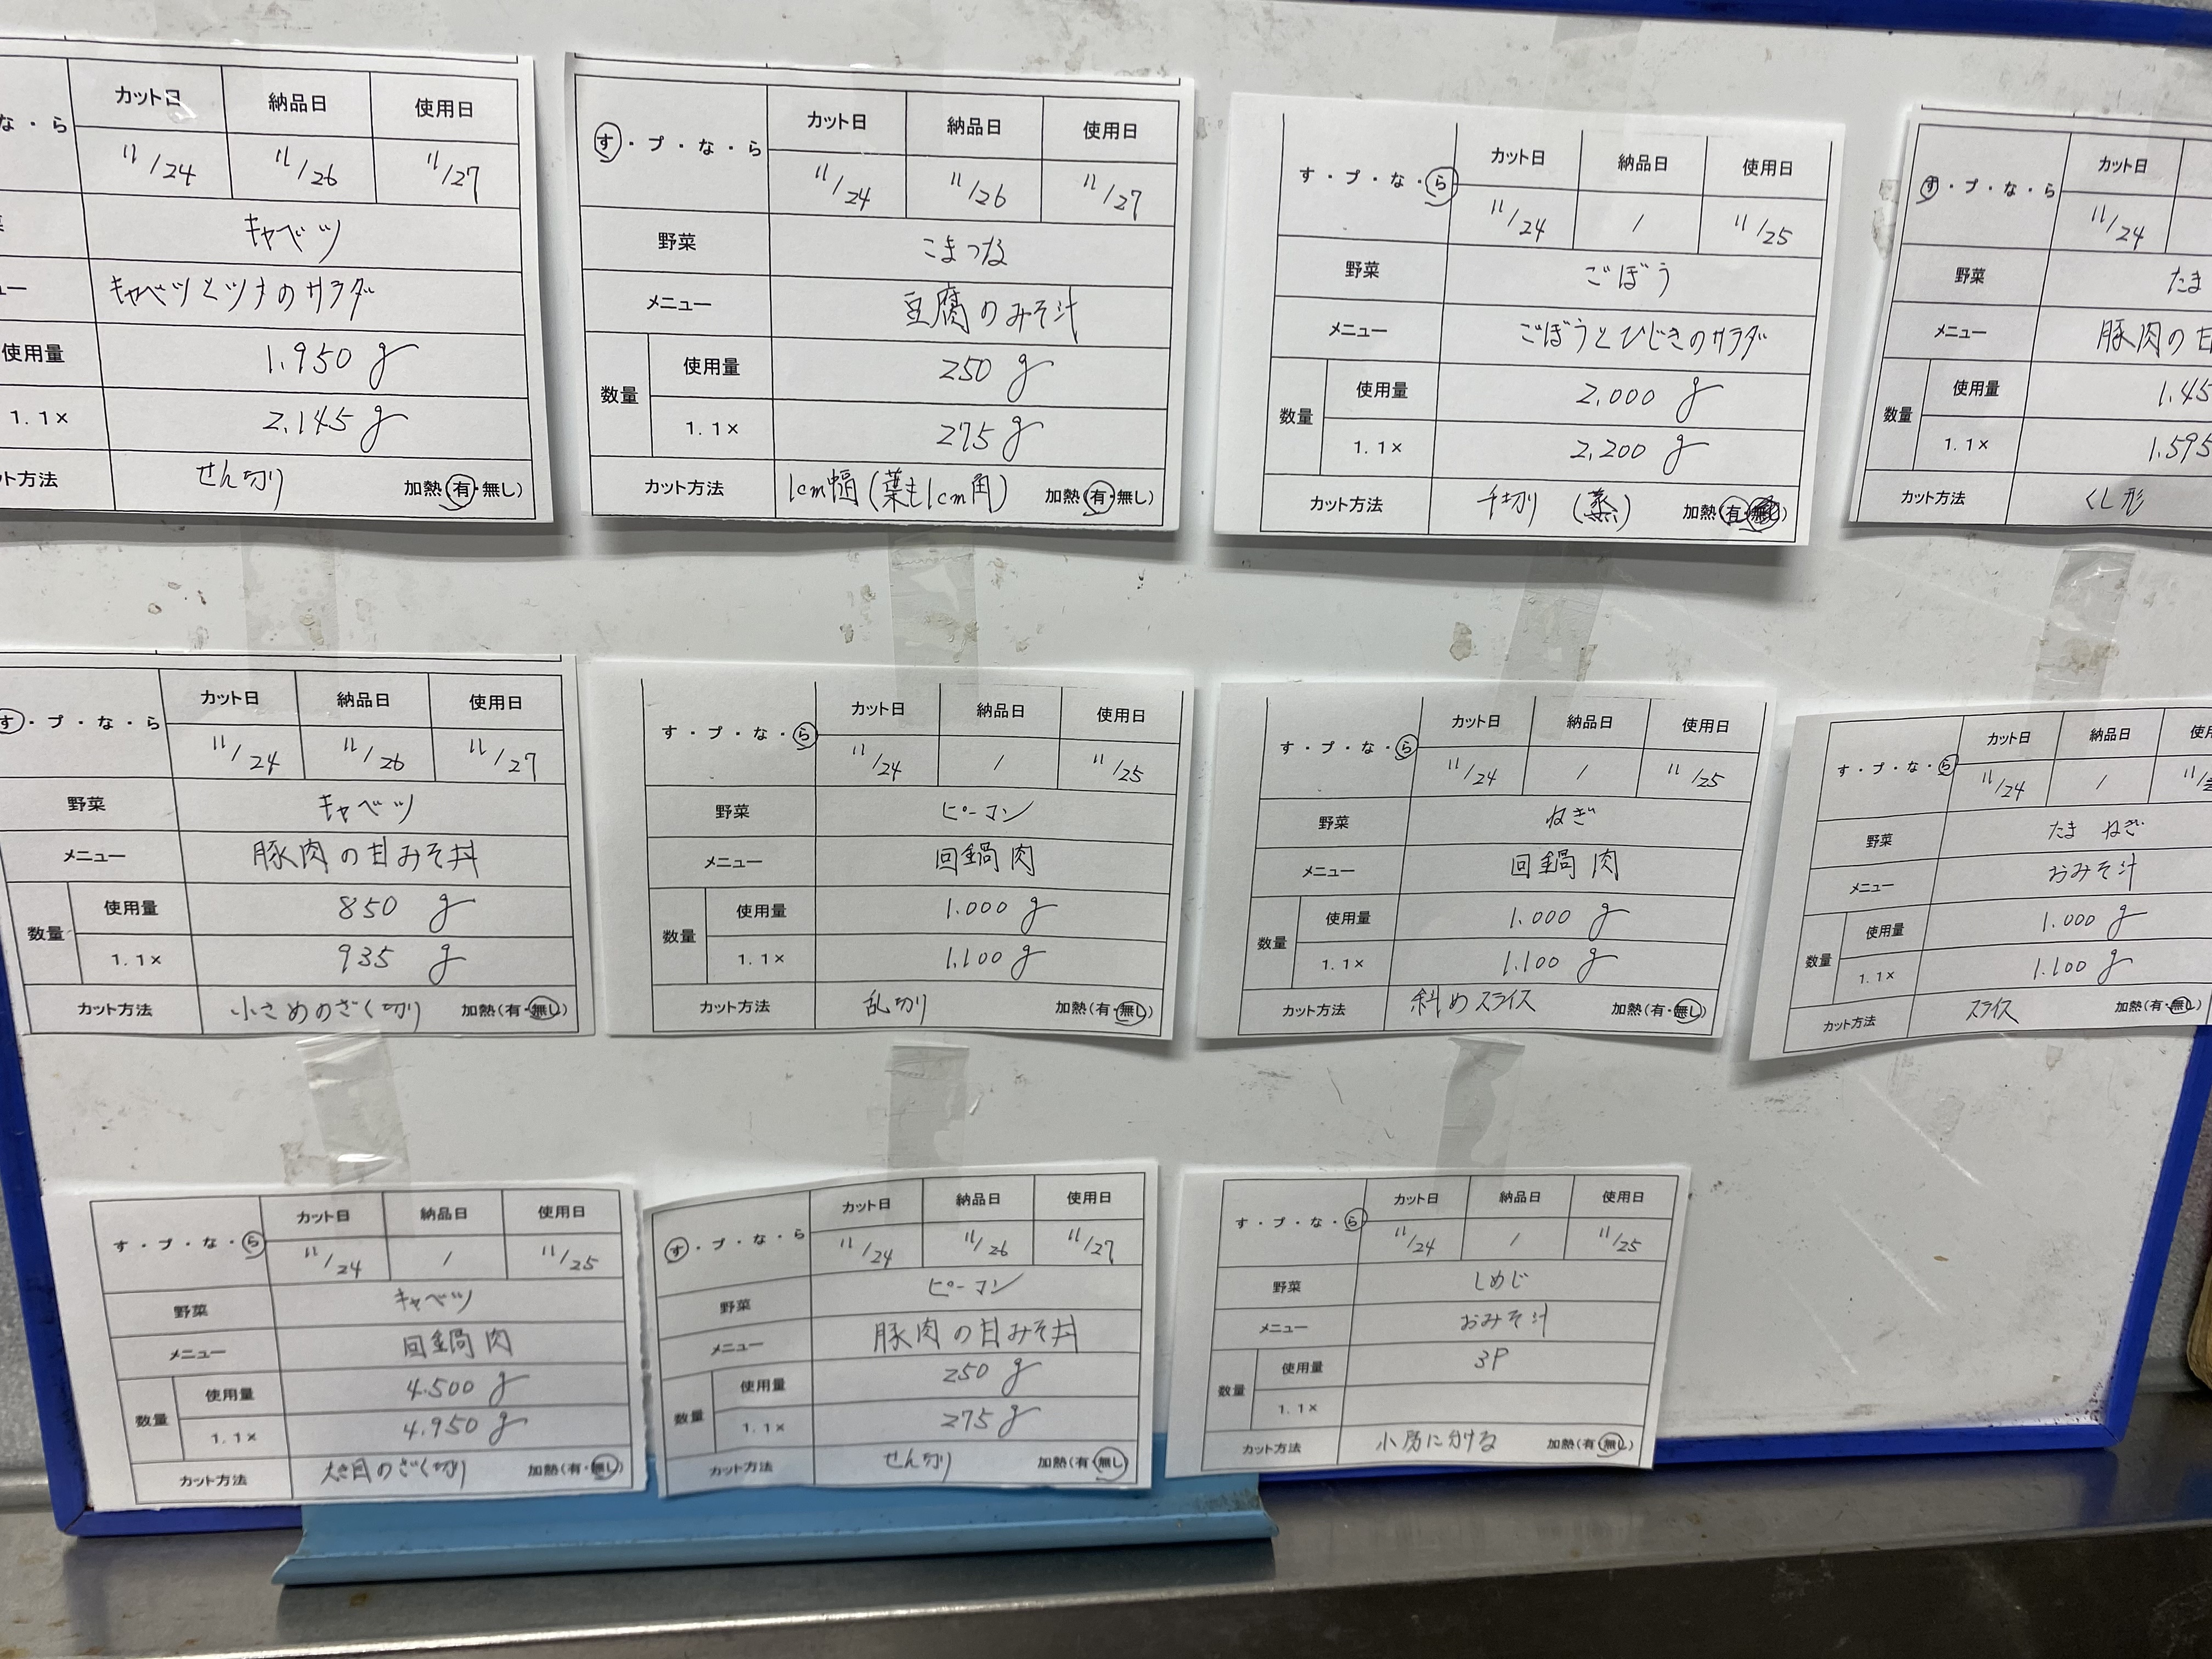 カット日 納品日 使用日
な・ら 11/24 11/26 11/27
キャベツ
キャベツとツナのサラダ
使用量 1.950 g
1.1× 2.145 g
ット方法 せん切り 加熱(有・無し)
カット日 納品日 使用日
す・プ・な・ら 11/24 11/26 11/27
野菜 こまつな
メニュー 豆腐のみそ汁
数量 使用量 250 g
1.1× 275 g
カット方法 1cm幅(葉も1cm角) 加熱(有・無し)
カット日 納品日 使用日
す・プ・な・ら 11/24 / 11/25
野菜 ごぼう
メニュー ごぼうとひじきのサラダ
数量 使用量 2.000 g
1.1× 2.200 g
カット方法 千切り (蒸) 加熱(有・無し)
カット日
す・プ・な・ら 11/24
野菜 たま
メニュー 豚肉の甘
数量 使用量 1.45
1.1× 1.595
カット方法 くし形
カット日 納品日 使用日
す・プ・な・ら 11/24 11/26 11/27
野菜 キャベツ
メニュー 豚肉の甘みそ丼
数量 使用量 850 g
1.1× 935 g
カット方法 小さめのざく切り 加熱(有・無し)
カット日 納品日 使用日
す・プ・な・ら 11/24 / 11/25
野菜 ピーマン
メニュー 回鍋肉
数量 使用量 1.000 g
1.1× 1.100 g
カット方法 乱切り 加熱(有・無し)
カット日 納品日 使用日
す・プ・な・ら 11/24 / 11/25
野菜 ねぎ
メニュー 回鍋肉
数量 使用量 1.000 g
1.1× 1.100 g
カット方法 斜めスライス 加熱(有・無し)
カット日 納品日 使用
す・プ・な・ら 11/24 / 11/2
野菜 たまねぎ
メニュー おみそ汁
数量 使用量 1.000 g
1.1× 1.100 g
カット方法 スライス 加熱(有・無し)
カット日 納品日 使用日
す・プ・な・ら 11/24 / 11/25
野菜 キャベツ
メニュー 回鍋肉
数量 使用量 4.500 g
1.1× 4.950 g
カット方法 大き目のざく切り 加熱(有・無し)
カット日 納品日 使用日
す・プ・な・ら 11/24 11/26 11/27
野菜 ピーマン
メニュー 豚肉の甘みそ丼
数量 使用量 250 g
1.1× 275 g
カット方法 せん切り 加熱(有・無し)
カット日 納品日 使用日
す・プ・な・ら 11/24 / 11/25
野菜 しめじ
メニュー おみそ汁
数量 使用量 3P
1.1×
カット方法 小房に分ける 加熱(有・無し)